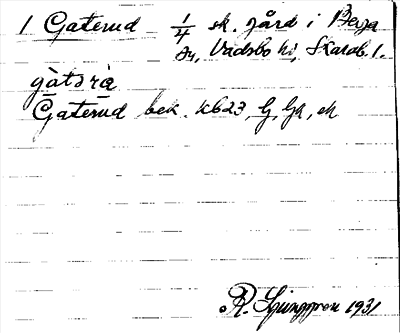 1 Gaterud 1/4 sk. gård i Beya
sn, Vadsbo hd, Skarab. l.
gàtəra
Gaterud bek. kb23, G, Gk, ek
R. Ljunggren 1931